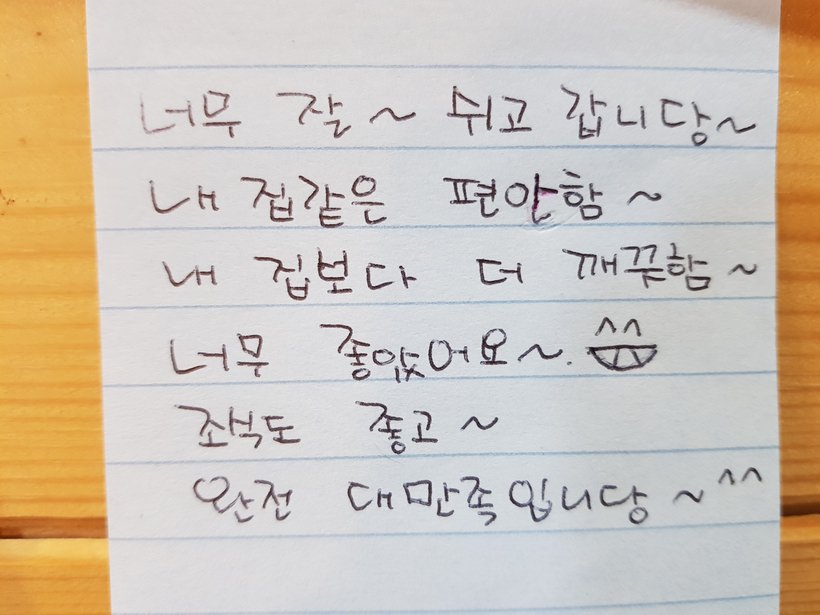 너무 잘~ 쉬고 갑니당~
내 집같은 편안함~
내 집보다 더 깨끗함~
너무 좋았어요~. ^^
조식도 좋고~
완전 대만족입니당~^^